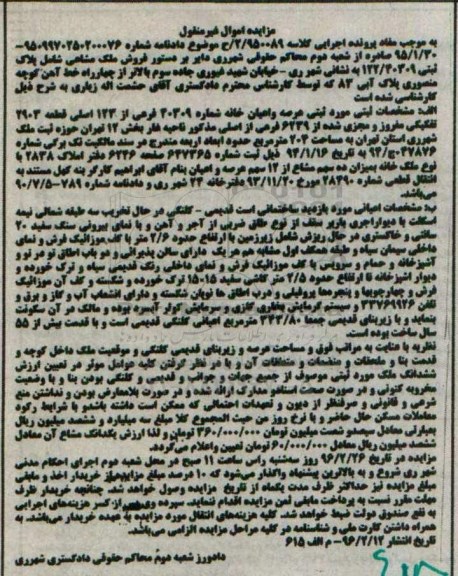 مزایده اموال غیرمنقول
به موجب مفاد پرونده اجرایی کلاسه ۲/۹۵۰۰۸۹/ح موضوع دادنامه شماره ۹۵۰۹۹۷۰۲۵۰۲۰۰۰۷۶-
۹۵/۱/۳۰ صادره از شعبه دوم محاکم حقوقی شهرری دایر بر دستور فروش ملک مشاعی شامل پلاک
ثبتی ۱۲۲/۴۰۳۰۹ به نشانی شهر ری -خیابان شهید غیوری جاده سوم بالاتر از چهارراه خط آهن کوچه
منصوری پلاک آبی ۸۳ که توسط کارشناس محترم دادگستری آقای حشمت اله زیاری به شرح ذیل
کارشناسی شده است
الف: مشخصات ثبتی مورد ثبتی عرصه واعیان خانه شماره ۴۰۳۰۹ فرعی از ۱۲۲ اصلی قطعه ۲۹۰۳
تفکیکی مفروز و مجزی شده از ۶۲۳۹ فرعی از اصلی مذکور ناحیه غار بخش ۱۲ تهران حوزه ثبت ملک
شهرری استان تهران به مساحت ۲۰۴ مترمربع حدود ابعاد اربعه مندرج در سند مالکیت تک برگی شماره
۰۴۷۸۷۶ج/۹۳ به تاریخ ۹۴/۱/۱۶ ذیل ثبت شماره ۶۴۷۳۶۵ صفحه ۶۲۴۶ دفتر املاک ۲۸۳۸ با
نوع ملک خانه بمیزان ده سهم مشاع از ۱۲ سهم عرصه و اعیان بنام آقای ابراهیم کارگر بنه کهل مستند به
انتقال قطعی شماره ۲۸۴۹۰ مورخ ۹۳/۱۱/۲۰ دفترخانه ۲۴ شهر ری و دادنامه شماره ۷۸۹-۹۰/۷/۵
می‌باشد.
ب: مشخصات اعیانی مورد بازدید ساختمانی است قدیمی - کلنگی در حال تخریب سه طبقه شمالی نیمه
اسکلت با دیوار آجری باربر سقف از نوع طاق ضربی از آجر و آهن و با نمای بیرونی سنگ سفید ۲۰
سانتی و خاکستری در حال ریزش شامل زیرزمین با ارتفاع حدود ۲/۶ متر با کف موزائیک فرش و نمای
داخلی سیمان سیاه و طبقه همکف اول مشابه هم هر یک دارای سالن پذیرائی و دو باب اطاق تو در تو و
آشپزخانه و حمام و سرویس با کف موزائیک فرش و نمای داخلی رنگ قدیمی سیاه و ترک خورده و
دیوار آشپزخانه تا ارتفاع حدود ۲/۵ متر کاشی سفید ۱۵-۱۵ ترک خورده و شکسته و کف آن موزائیک
فرش و چهارچوبها و پنجره‌ها پروفیلی و درب اطاق ها نوپان شکسته و دارای انشعاب آب و گاز و برق و
تلفن ۳۳۷۶۹۹۴۶ و سیستم گرمایش بخاری گازی و سرمایش کولر آبی بوده و مالک در آن سکونت
بنماید و با زیربنای قدیمی جمعا ۳۴۳/۸۰ مترمربع اعیانی کلنگی قدیمی است و با قدمت بیش از ۵۵
سال ساخت بوده است.
نظریه با عنایت به مراتب فوق و مساحت عرصه و زیربنای قدیمی کلنگی و موقعیت ملک داخل کوچه و
قدمت بنا و ملحقات و منضمات و متعلقات آن و با در نظر گرفتن کلیه عوامل موثر در تعیین ارزش
ششدانگ ملک مورد ثبتی موصوف از جمیع جهات و جوانب و قدیمی و کلنگی بودن بنا و با وضعیت
مخروبه کنونی و در صورت صحت اسنادو مدارک ارائه شده و در صورت بلامعارض بودن و نداشتن منع
شرعی و قانونی و صرفنظر از دیون و تعهدات احتمالی که ممکن است داشته باشدو با شرایط رکود
معاملات مسکن حال حاضر و با نرخ روز من حیث المجموع کلا مبلغ سه میلیارد و ششصد میلیون ریال
بعبارتی معادل سیصدو شصت میلیون تومان ۳۶۰/۰۰۰/۰۰۰ تومان و لذا ارزش یکدانگ مشاع آن معادل
ششصد میلیون ریال معادل ۶۰/۰۰۰/۰۰۰ تومان تعیین واعلام می‌گردد.
مزایده در تاریخ ۹۶/۲/۲۶ روز سه‌شنبه راس ساعت ۱۱ صبح در محل شعبه دوم اجرای احکام مدنی
شهر ری شروع و به بالاترین پیشنهاد واگذار می‌شود که ۱۰ درصد مبلغ مزایده از خریدار اخذ و مابقی
مبلغ مزایده نیز حداکثر ظرف مدت یکماه از تاریخ مزایده وصول خواهد شد. چنانچه خریدار ظرف
مهلت مقرر نسبت به پرداخت مابقی ثمن مزایده اقدام ننماید. سپرده وی پس از کسر هزینه‌های اجرایی
به نفع صندوق دولت ضبط خواهد شد. کلیه هزینه‌های انتقال مورد مزایده به عهده خریدار می‌باشد. به
همراه داشتن کارت ملی و شناسنامه در کلیه مراحل مزایده الزامی می‌باشد.
تاریخ انتشار ۹۶/۲/۱۲- م الف ۶۱۵
دادورز شعبه دوم محاکم حقوقی دادگستری شهرری